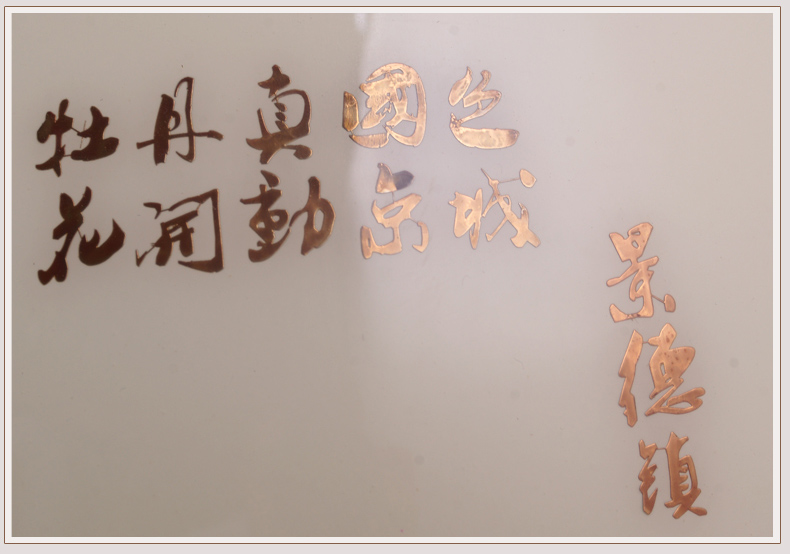 牡丹真國色
花開動京城
景德鎮